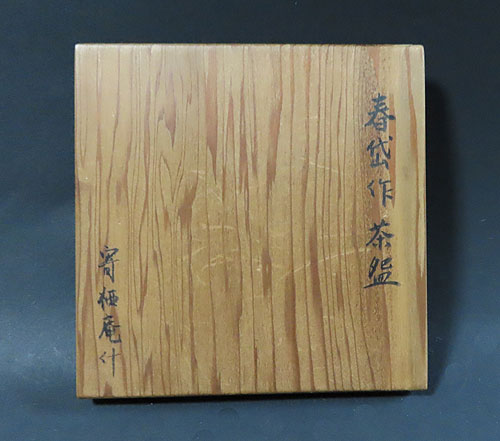 春岱作 茶盌
寄栖庵什